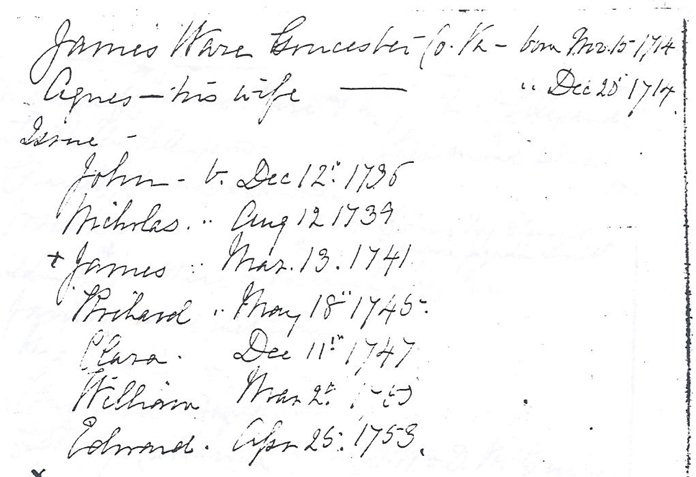 James Ware Gloucester Co. Va – born Mar. 15 1714
Agnes – his wife — " Dec 20" 1714.
Issue –
John – b. Dec 12" 1736
Nicholas. " Aug 12 1739
+ James " Mar. 13. 1741
Richard " May 18" 1745.
Clara. Dec 11" 1747
William Mar 2"
Edward. Apr 25. 1753.
x